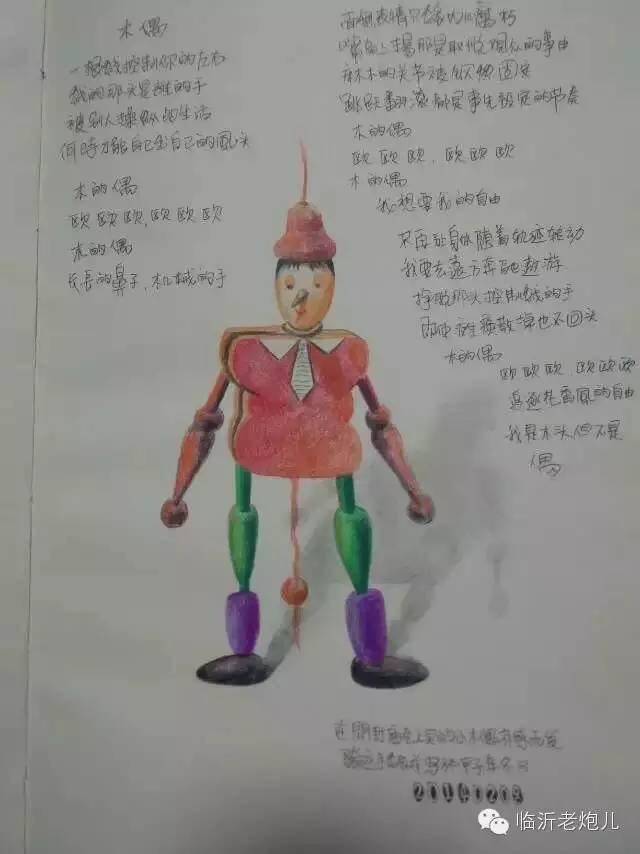 木偶
一根线控制你的左右
线的那头是谁的手
被别人操纵的生活
何时才能自己出自己的风头
木的偶
欧欧欧,欧欧欧
木的偶
长长的鼻子,机械的手
面部表情只能
嘴角上扬那是取悦观众的事由
麻木的关节被铁钉固定
跳跃翻滚都是事先设定的节奏
木的偶
欧欧欧,欧欧欧
木的偶
我想要我的自由
不再让身体随着轨迹转动
我要去远方奔跑遨游
挣脱那头控制线的手
即使
也不回头
木的偶
欧欧欧,欧欧欧
自由
我是木头但不是
偶
临沂老炮儿